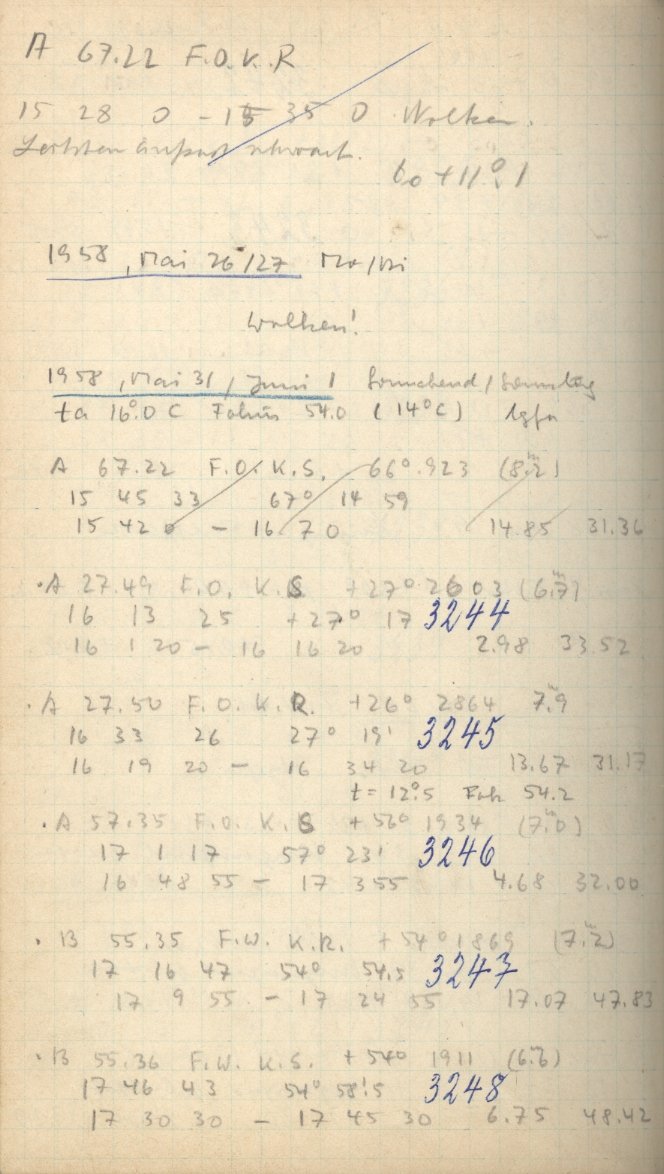 A 67.22 F.O. K.R
15 28 0 - 15 35 0 Wolken.
schwach.
b0 +11°.1
1958, Mai 26/27 Mo/Di
Wolken!
1958, Mai 31, Juni 1 Sonnabend/Sonntag
ta 16°.0 C Fokus 54.0 (14°C)
A 67.22 F.O. K.S. 66°.923 (8.m2)
15 45 33 67° 14 59
15 42 0 - 16 7 0 14.85 31.36
·A 27.49 F.O. K.S +27° 2603 (6.m7)
16 13 25 +27° 17 3244
16 1 20 - 16 16 20 2.98 33.52
·A 27.50 F.O. K.R. +26° 2864 7.m9
16 33 26 27° 19' 3245
16 19 20 - 16 34 20 13.67 31.17
t = 12°.5 Fok 54.2
·A 57.35 F.O. K.S +56° 1934 (7.m0)
17 1 17 57° 23' 3246
16 48 55 - 17 3 55 4.68 32.00
·B 55.35 F.W. K.R. +54° 1869 (7.m2)
17 16 47 54° 54.5 3247
17 9 55 - 17 24 55 17.07 47.83
·B 55.36 F.W. K.S. +54° 1911 (6.m6)
17 46 43 54° 58'.5 3248
17 30 30 - 17 45 30 6.75 48.42